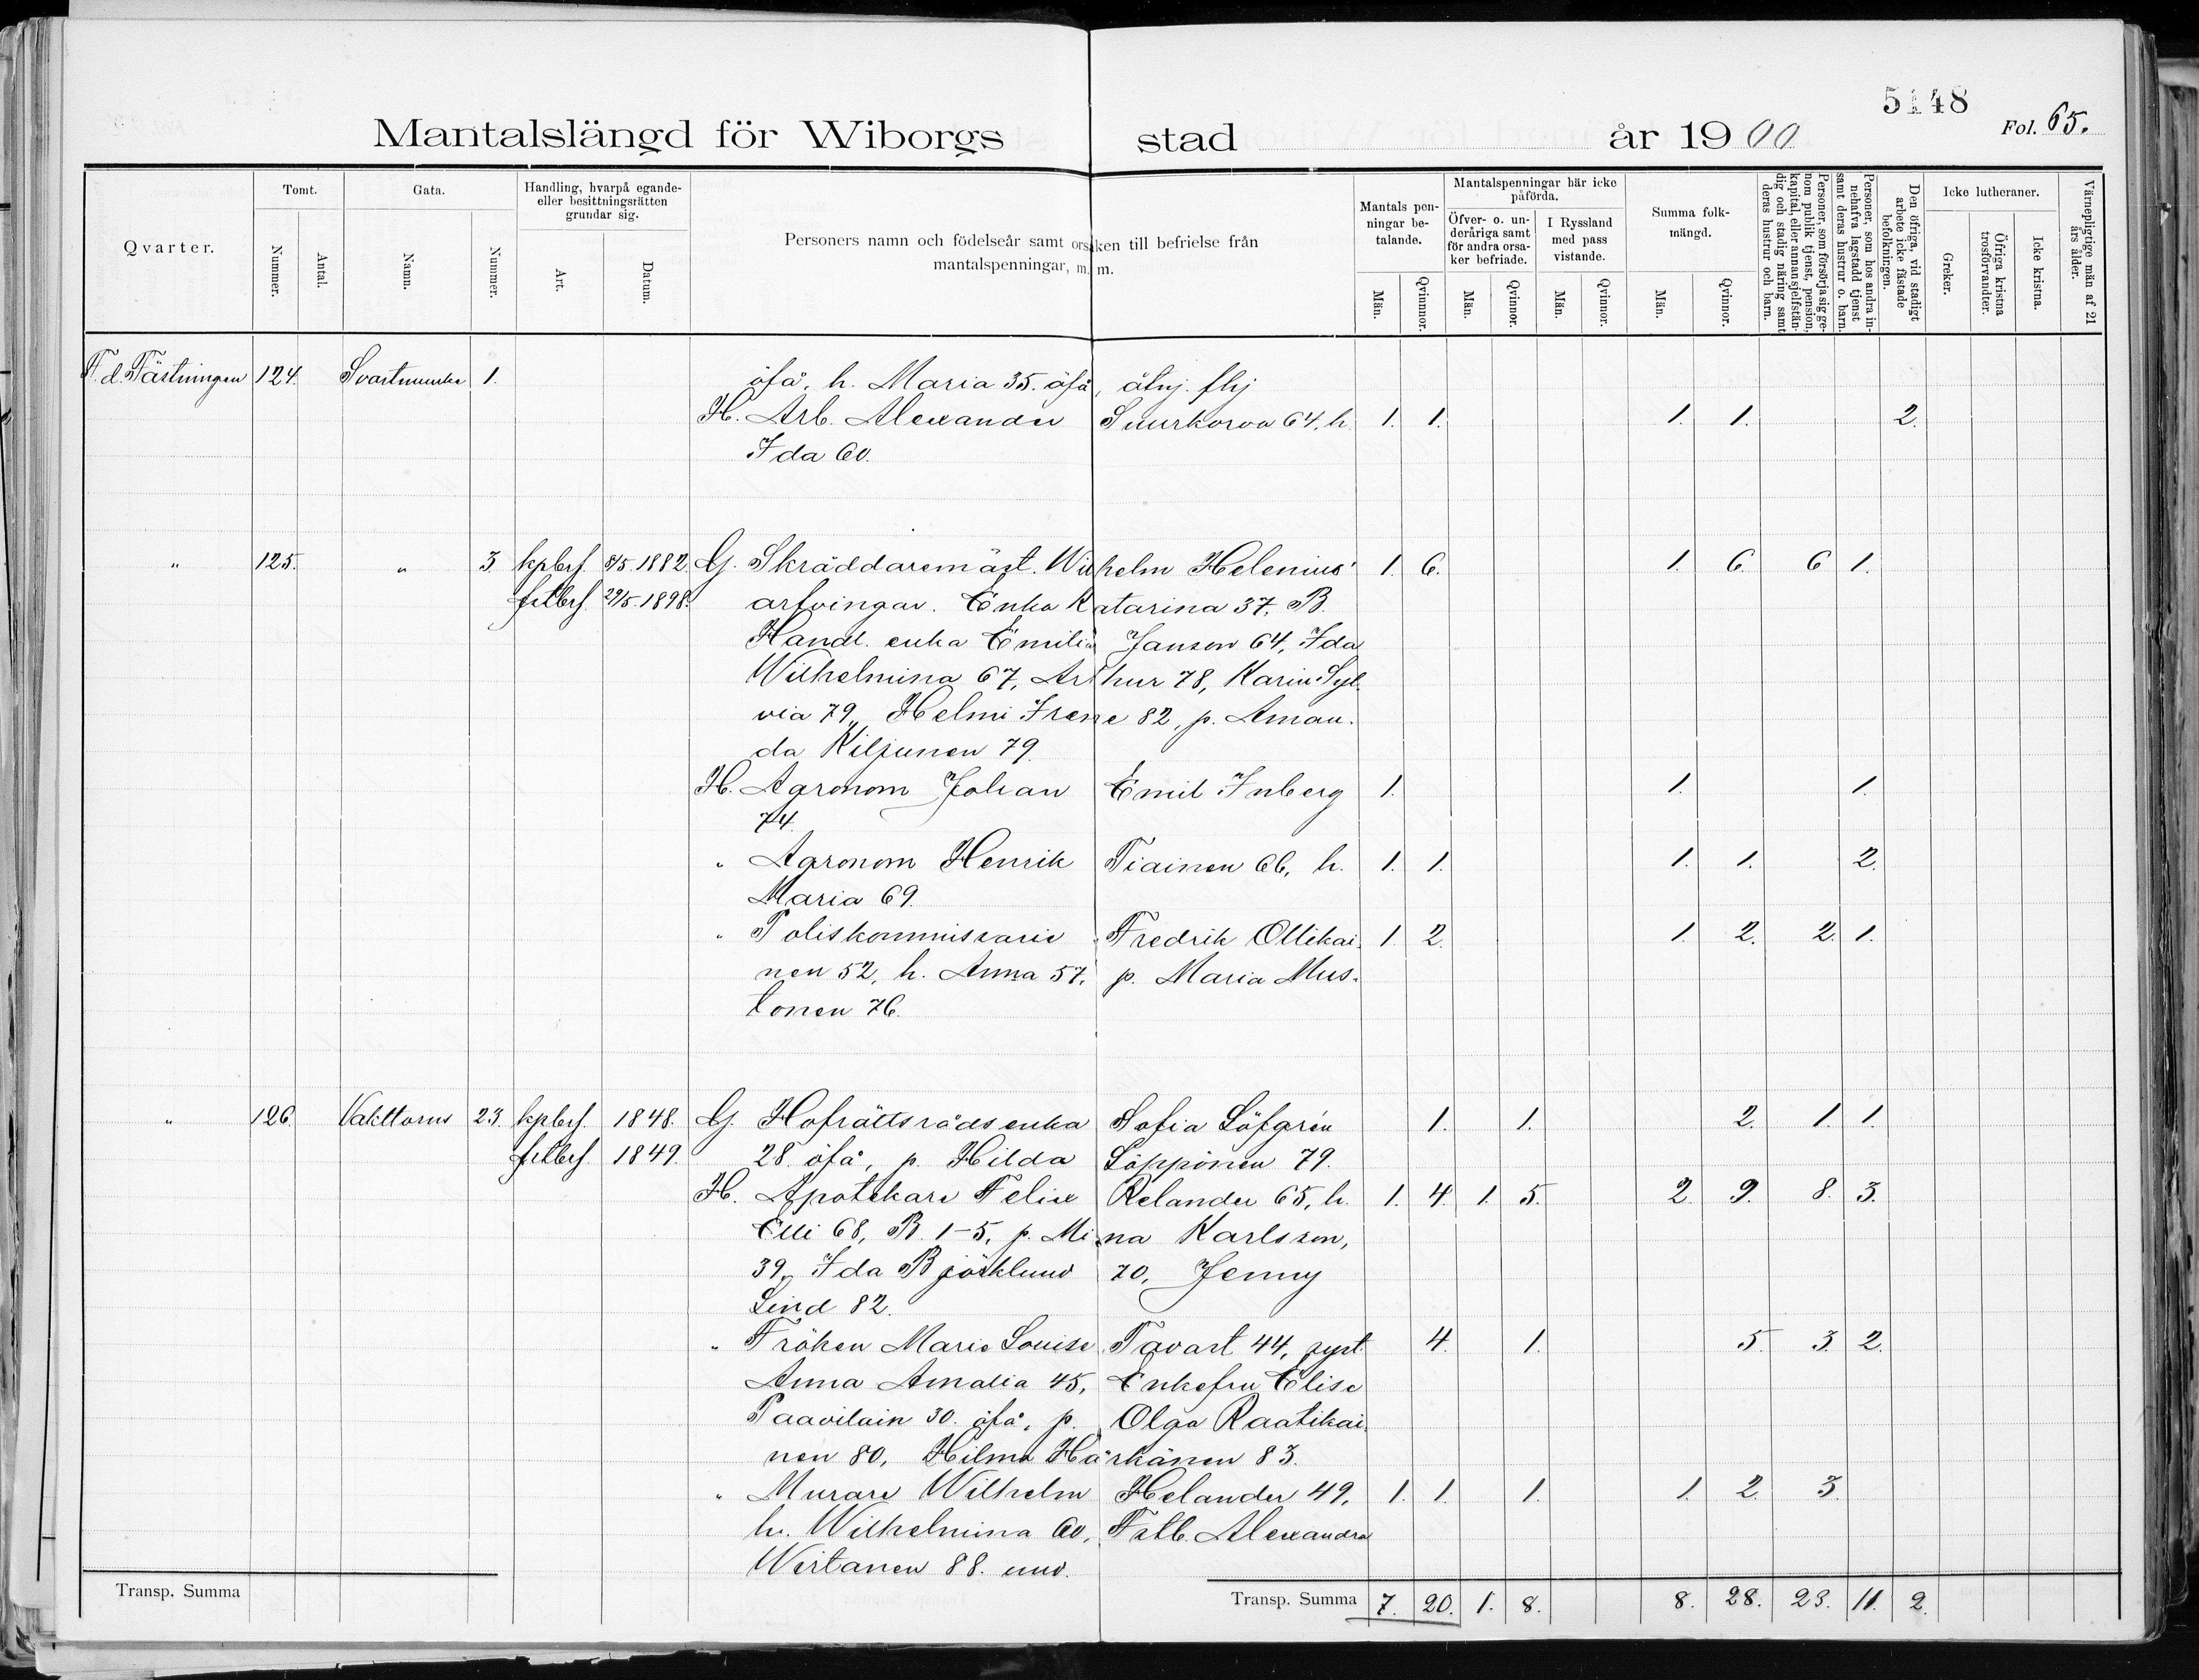 5148
Fol. 65.
Mantalslängd för Wiborgs stad år 1900
Qvarter.
Tomt.
Nummer.
Antal.
Gata.
Namn.
Nummer.
Handling, hvarpå egande- eller besittningsrätten grundar sig.
Art.
Datum.
Personers namn och födelseår samt orsaken till befrielse från mantalspenningar, m. m.
Mantals penningar betalande.
Män.
Qvinnor.
Mantalspenningar här icke påförda.
Öfver- o. underåriga samt för andra orsaker befriade.
Män.
Qvinnor.
I Ryssland med pass vistande.
Män.
Qvinnor.
Summa folkmängd.
Män.
Qvinnor.
Personer, som försörja sig genom publik tjenst, pension, kapital, eller annan sjelfständig och stadig näring samt deras hustrur och barn.
Personer, som hos andra innehafva lagstadd tjenst samt deras hustrur o. barn.
Den öfriga, vid stadigt arbete icke fästade befolkningen.
Icke lutheraner.
Greker.
Öfriga kristna trosförvandter.
Icke kristna.
Värnepligtige män af 21 års ålder.
F. d. Fästningen 124. Svartmunka 1. öfå, h. Maria 35. öfå, åtnj. fhj
H. Arb. Alexander Suurkorva 64, h. 1. 1. 1. 1. 2.
Ida 60.
" 125. " 3 kpbrf. 8/5. 1882 G. Skräddaremäst. Wilhelm Helenius' 1. 6. 1. 6. 6 1.
fstbrf. 29/5. 1898. arfvingar. Enka Katarina 37, B.
Handl. enka Emilia Janson 64, Ida
Wilhelmina 67, Arthur 78, Karin Syl-
via 79, Helmi Irene 82, p. Aman-
da Kiljunen 79.
H. Agronom Johan Emil Inberg 1. 1. 1.
74.
" Agronom Henrik Tiainen 66, h. 1. 1. 1. 1. 2.
Maria 69.
" Poliskommissarie Fredrik Ollikai- 1. 2. 1. 2. 2. 1.
nen 52, h. Anna 57, p. Maria Mus-
tonen 76.
" 126. Vakttorns 23. kpbrf. 1848. G. Hofrättsrådsenka Sofia Löfgrén 1. 1. 2. 1. 1.
fstbrf. 1849. 28. öfå, p. Hilda Löppönen 79.
H. Apotekare Felix Relander 65, h. 1. 4. 1. 5. 2. 9. 8. 3.
Elli 68, B. 1-5, p. Mina Karlsson,
39, Ida Björklund 70, Jenny
Lind 82.
" Fröken Marie Louise Tavast 44, syst. 4. 1. 5. 3. 2.
Anna Amalia 45, Enkefru Elise
Paavilain 30. öfå, p. Olga Raatikai-
nen 80, Hilma Härkänen 83.
" Murare Wilhelm Helander 49, 1. 1. 1. 1. 2. 3.
h. Wilhelmina 60, Fstb. Alexandra
Wirtanen 88. und.
Transp. Summa
Transp. Summa 7. 20. 1. 8. 8. 28. 23. 11. 2.